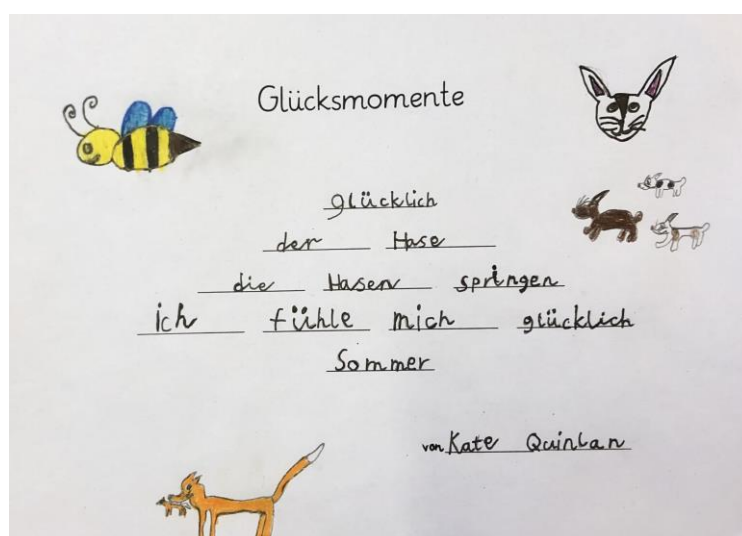 Glücksmomente
glücklich
der Hase
die Hasen springen
ich fühle mich glücklich
Sommer
von Kate Quinlan